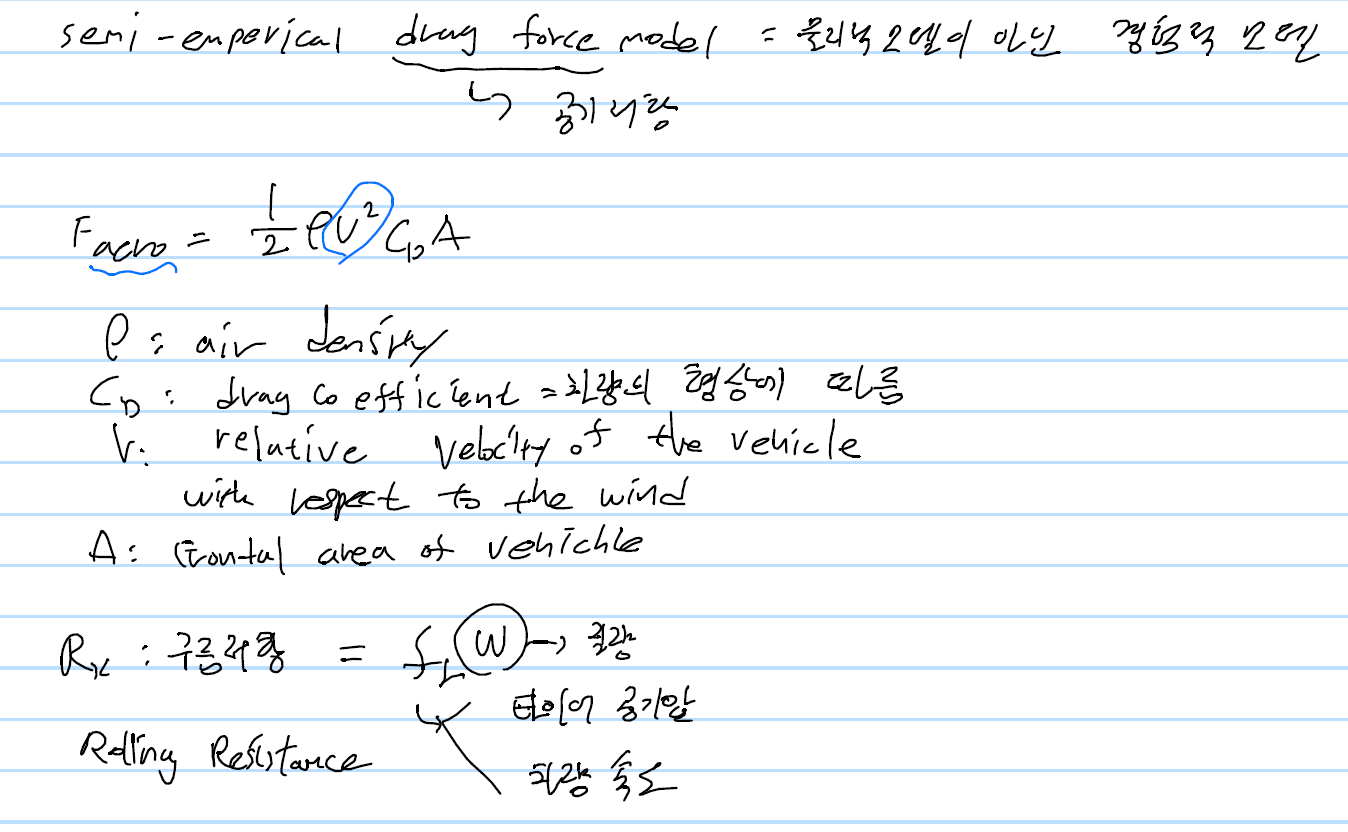 semi-emperical drag force model = 물리적 모델이 아닌 경험적 모델
↳ 공기저항
Faero = 1/2 ρV² C_D A
ρ : air density
C_D : drag coefficient = 차량의 형상에 따름
V : relative velocity of the vehicle
with respect to the wind
A : frontal area of vehichle
Rx : 구름저항 = fr W → 차량
타이어 공기압
Rolling Resistance
차량 속도